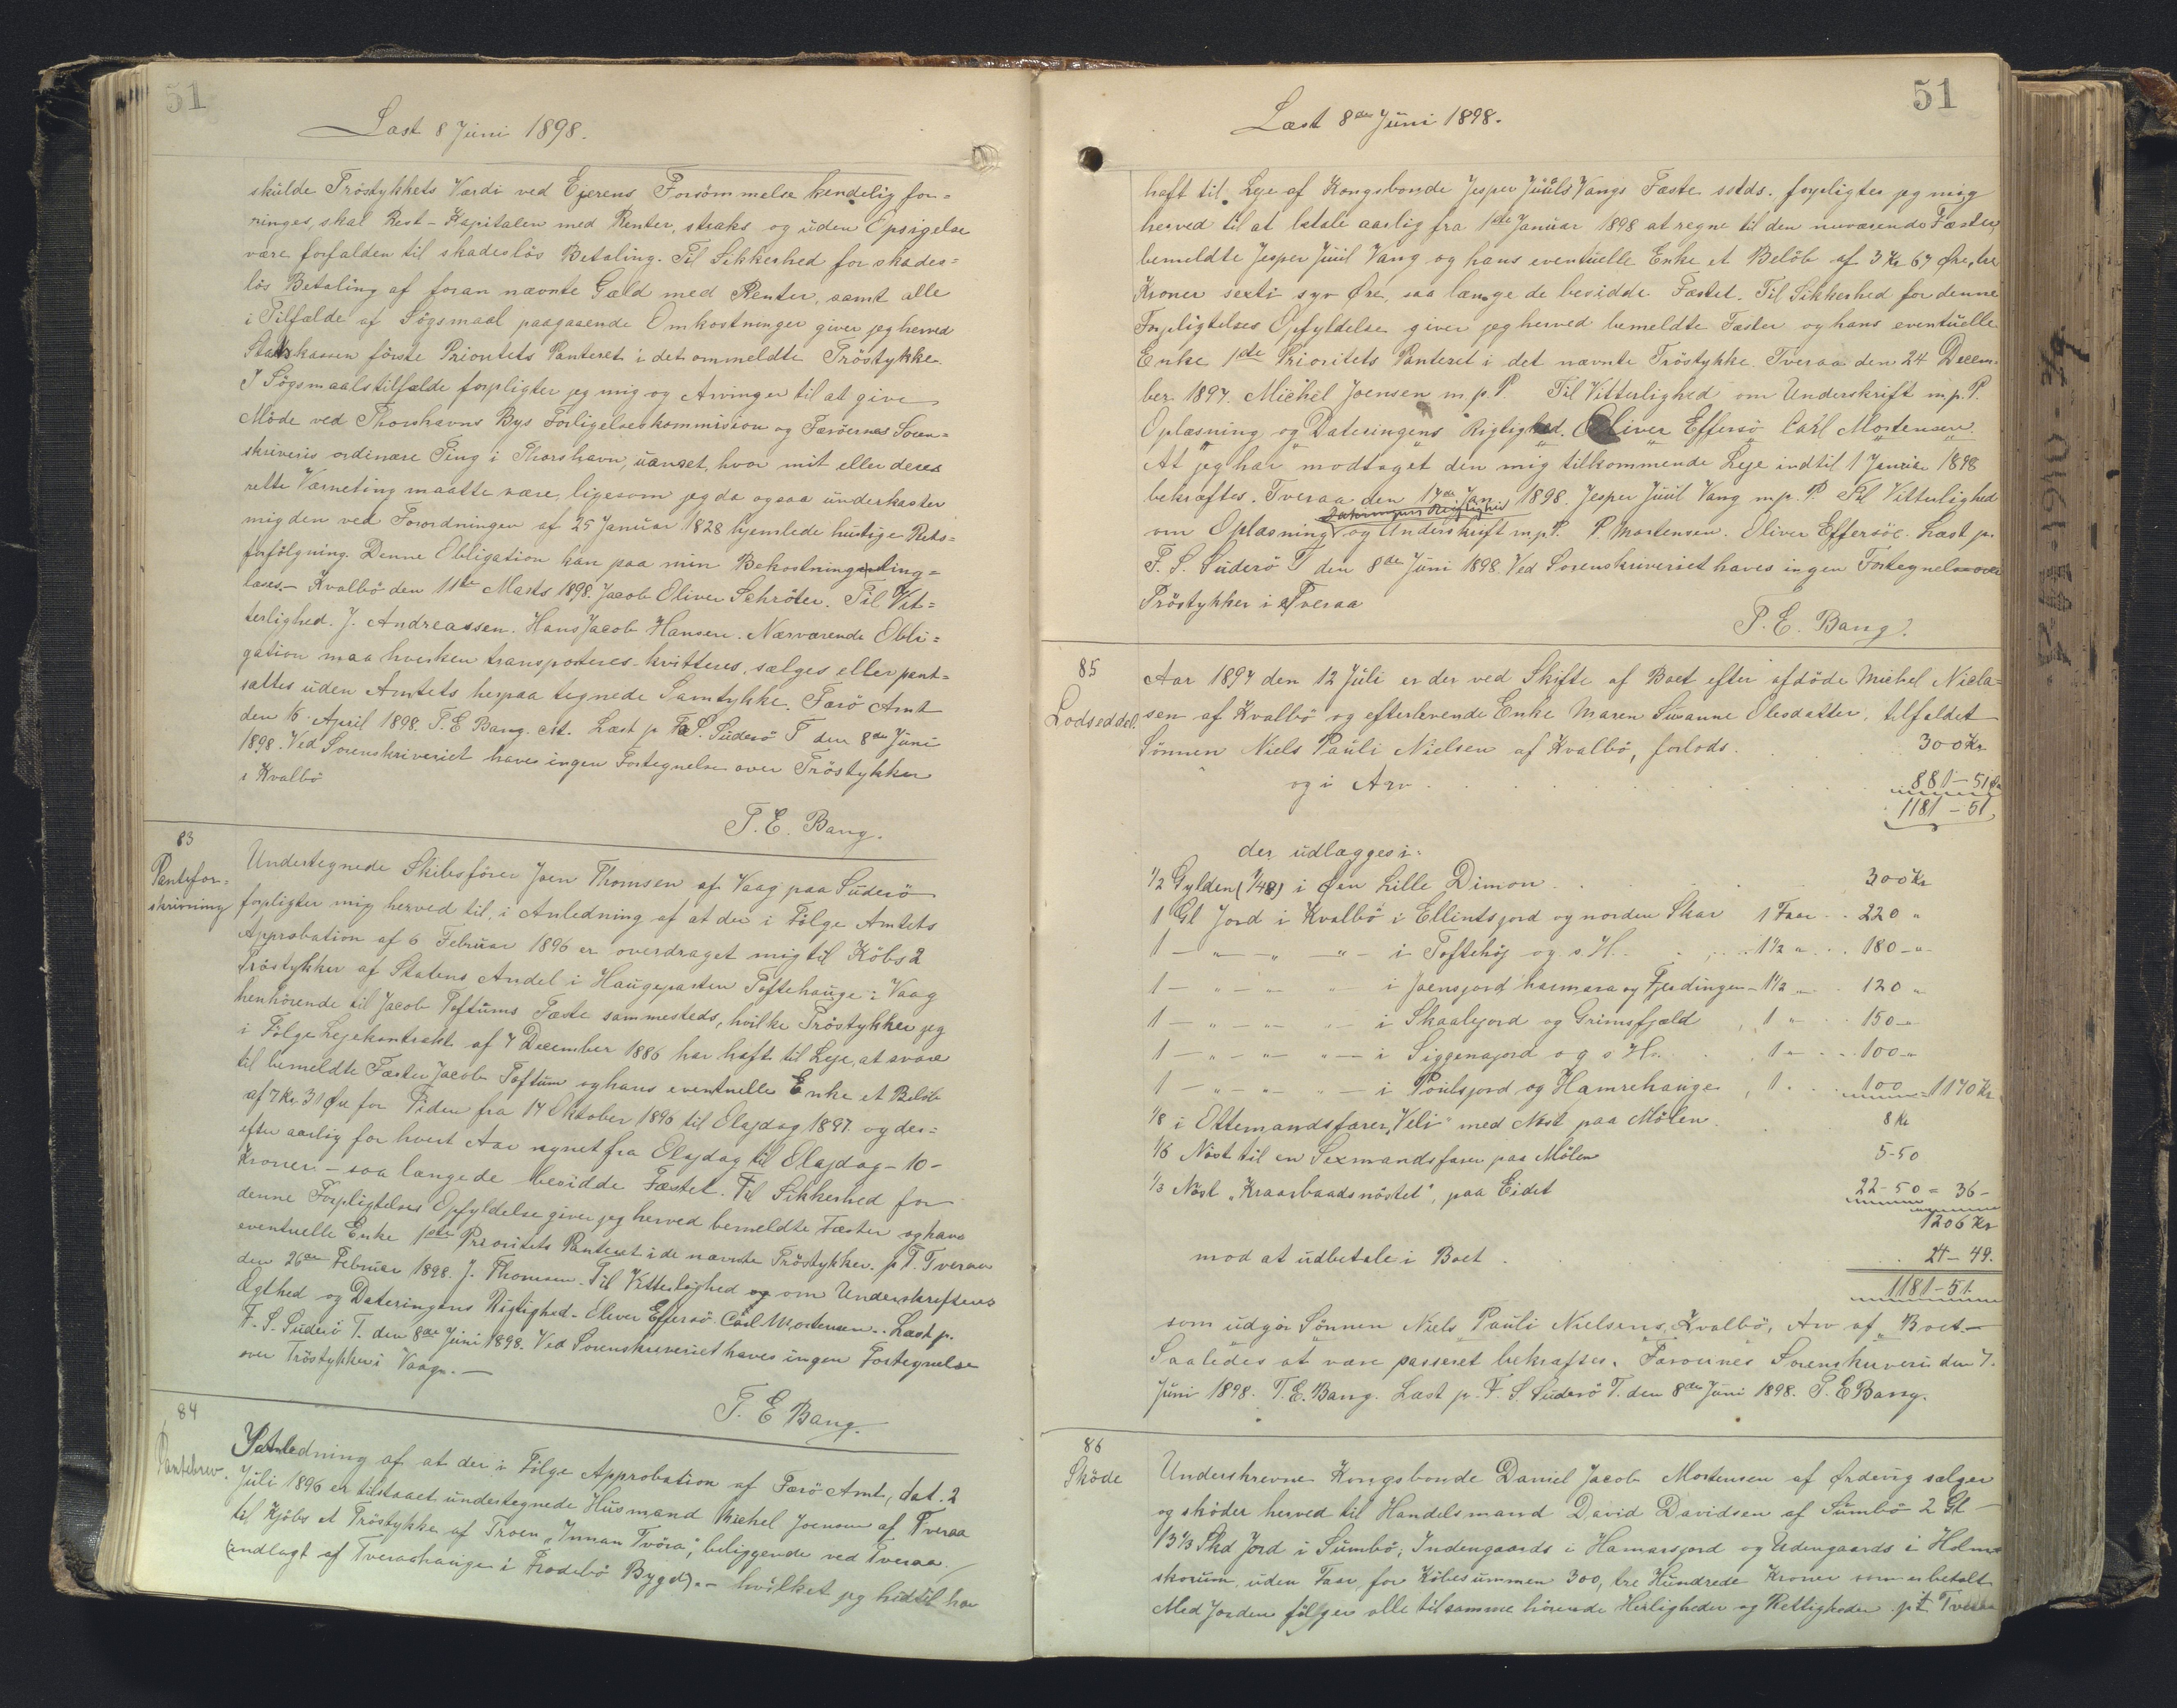 51
Læst 8 Juni 1898.
skulde Tröstykkets Værdi ved Ejerens Forsömmelse kendelig for=
ringes, skal Rest-Kapitalen med Renter, straks og uden Opsigelse
være forfalden til skadeslös Betaling. Til Sikkerhed for skades=
lös Betaling af foran nævnte Gæld med Renter, samt alle
i Tilfælde af Sögsmaal paagaaende Omkostninger giver jeg herved
Statskassen förste Prioritets Panteret i det ommeldte Tröstykke.
I Sögsmaalstilfælde forpligter jeg mig og Arvinger til at give
Möde ved Thorshavns Bys Forligelseskommission og Færöernes Soren=
skriveris ordinære Ting i Thorshavn, uanset, hvor mit eller deres
rette Værneting maatte være, ligesom jeg da ogsaa underkaster
mig den ved Forordningen af 25 Januar 1828 hjemlede hurtige Rets=
forfölgning. Denne Obligation kan paa min Bekostning ting=
læses.- Kvalbö den 11te Marts 1898. Jacob Oliver Schröter. Til Vit=
terlighed. J. Andreassen. Hans Jacob Hansen. Nærværende Obli=
gation maa hverken transporteres-kvitteres, sælges eller pant=
sættes uden Amtets herpaa tegnede Samtykke. Færö Amt
den 16 April 1898. T. E Bang. cst. Læst p F.S. Suderö T den 8de Juni
1898. Ved Sorenskriveriet haves ingen Fortegnelse over Tröstykker
i Kvalbö
T. E. Bang.
83
Pantefor=
skrivning
Undertegnede Skibsförer Joen Thomsen af Vaag paa Suderö
forpligter mig herved til, i Anledning af at der i Fölge Amtets
Approbation af 6 Februar 1896 er overdraget mig til Köbs 2
Tröstykker af Statens Andel i Haugeparten Toftehauge i Vaag
henhörende til Jacob Toftums Fæste sammesteds, hvilke Tröstykker jeg
i Fölge Lejekontrakt af 7 December 1886 har haft til Leje, at svare
til bemeldte Fæster Jacob Toftum og hans eventuelle Enke et Belöb
af 7 Kr 31 Øre for Tiden fra 17 Oktober 1896 til Olajdag 1897 og der=
efter aarlig for hvert Aar regnet fra Olajdag til Olajdag - 10 -
Kroner - saa længe de besidde Fæstet. Til Sikkerhed for
denne Forpligtelses Opfyldelse giver jeg herved bemeldte Fæster og hans
eventuelle Enke 1ste Prioritets Panteret i de nævnte Tröstykker. p T. Tveraa
den 26de Februar 1898. J. Thomsen. Til Vitterlighed og om Underskriftens
Ægthed og Dateringens Rigtighed. Oliver Effersö. Carl Mortensen. Læst p.
F. S. Suderö T. den 8de Juni 1898. Ved Sorenskriveriet haves ingen Fortegnelse
over Tröstykker i Vaag. -
T. E Bang.
84
Pantebrev.
I Anledning af at der i Fölge Approbation af Færö Amt, dat. 2
Juli 1896 er tilstaaet undertegnede Husmand Michel Joensen af Tveraa
til Kjöbs et Tröstykke af Troen "Innan Tvöra", beliggende ved Tveraa
(indlagt af Tveraahauge i Frodebö Bygd). - hvilket jeg hidtil har
51
Læst 8de Juni 1898.
haft til Leje af Kongsbonde Jesper Juuls Vangs Fæste sstds. forpligter jeg mig
herved til at betale aarlig fra 1ste Januar 1898 at regne til den nuværende Fæster,
bemeldte Jesper Juul Vang og hans eventuelle Enke et Belöb af 3 Kr 67 Øre, tre
Kroner sexti syv Øre, saa længe de besidde Fæstet. Til Sikkerhed for denne
Forpligtelses Opfyldelse giver jeg herved bemeldte Fæster og hans eventuelle
Enke 1ste Prioritets Panteret i det nævnte Tröstykke. Tveraa den 24 Decem-
ber 1897. Michel Joensen m. p. P. Til Vitterlighed om Underskrift m. p. P.
Oplæsning og Dateringens Rigtighed. Oliver Effersö Carl Mortensen.
At jeg har modtaget den mig tilkommende Leje indtil 1 Januar 1898
bekræftes. Tveraa den 17de Jan. 1898. Jesper Juul Vang mp. P. Til Vitterlighed
Dateringens Rigtighed
om Oplæsning og Underskrift m.p.P. P. Mortensen. Oliver Effersöe. Læst p.
F. S. Suderö T den 8de Juni 1898. Ved Sorenskriveriet haves ingen Fortegnelse over
Tröstykker i Tveraa
T. E. Bang.
85
Lodseddel.
Aar 1897 den 12 Juli er der ved Skifte af Boet efter afdöde Michel Niela=
sen af Kvalbö og efterlevende Enke Maren Susanne Olesdatter, tilfaldet
Sönnen Niels Pauli Nielsen af Kvalbö, forlods . . 300 Kr
og i Arv . . . . 881 - 51 Ø
1181 - 51
der udlægges i:
1/2 Gylden (1/48) i Øen Lille Dimon . . . 300 Kr
1 Gl Jord i Kvalbö i Ellintsjord og norden Skar 1 Faar . . 220 "
1 - " - " - " - i Toftehöj og s. H. . . . 1 1/2 " . . 180 - " -
1 - " - " - " - i Joensjord, harmara og Fjerdingen - 1 1/2 " . . 120 "
1 - " - " - " - i Skaalejord og Grimsfjæld , 1 " . . 150 - "
1 - " - " - " - i Siggenajord og s H. . . . 1 - . . 100 - "
1 - " - " - " - i Poulsjord og Hamrehauge , 1 . . 100 = 1170 Kr.
1/8 i Ottemandsfarer "Veli" med Nöst paa Mölen . . 8 Kr
1/6 Nöst til en Sexmandsfarer paa Mölen 5-50
1/3 Nöst "Kraasbaadsnöstet", paa Eidet 22-50 = 36 -
1206 Kr
mod at udbetale i Boet . . . 24 - 49.
1181 - 51.
som udgör Sönnen Niels Pauli Nielsens, Kvalbö, Arv af Boet. -
Saaledes at være passeret bekræftes. Færoernes Sorenskriveri den 7.
Juni 1898. T. E. Bang. Læst p. F. S. Suderö T. den 8de Juni 1898. T. E Bang.
86
Sköde
Underskrevne Kongsbonde Daniel Jacob Mortensen af Ørdevig sælger
og sköder herved til Handelsmand David Davidsen af Sumbö 2 Gl
13 1/3 Skd Jord i Sumbö, Indengaards i Hamarsjord og Udengaards i
skorum, uden Faar, for Köbesummen 300, tre Hundrede Kroner som er betalt
Med Jorden fölger alle tilsamme hörende Herligheder og Rettigheder. pt Tveraa